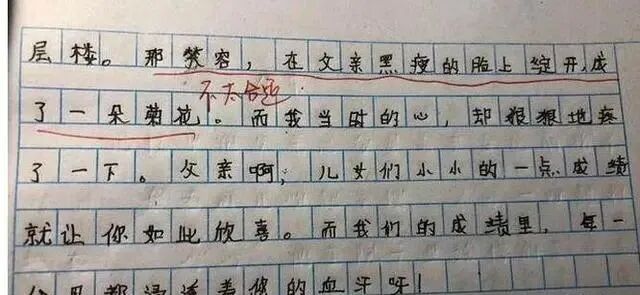 层楼。那笑容，在父亲黑瘦的脸上绽开成
不太合适
了一朵菊花。而我当时的心，却狠狠地疼
了一下。父亲啊；儿女们小小的一点成绩
就让你如此欣喜。而我们的成绩里，每一
分里都浸透着你的血汗呀！